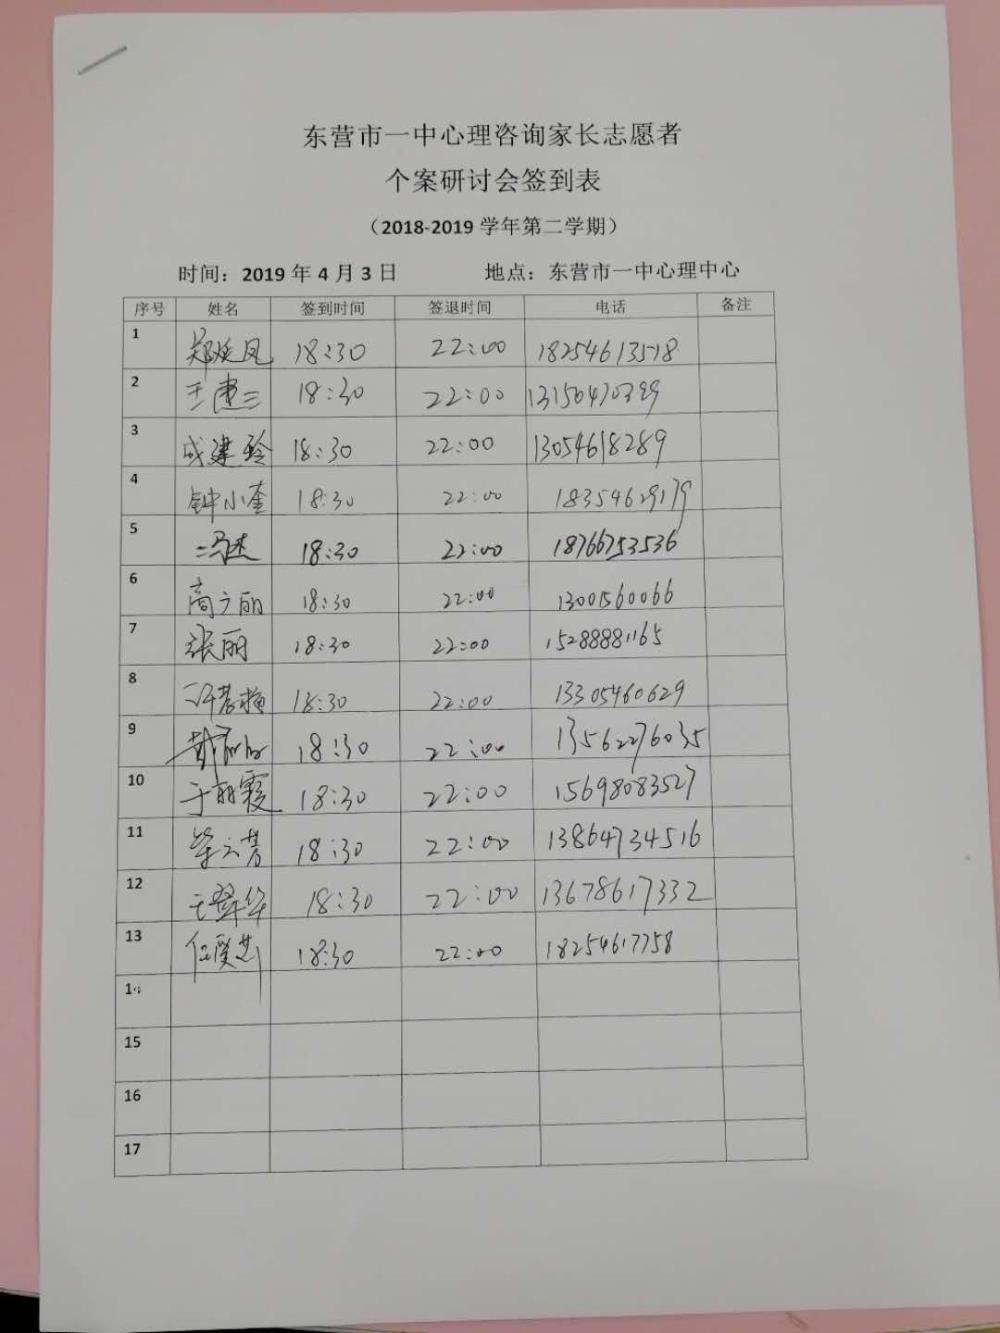 东营市一中心理咨询家长志愿者
个案研讨会签到表
（2018-2019 学年第二学期）
时间：2019 年 4 月 3 日 地点：东营市一中心理中心
序号 姓名 签到时间 签退时间 电话 备注
1 郑延凤 18:30 22:00 18254613518
2 王建三 18:30 22:00
3 成建玲 18:30 22:00 13054618289
4 钟小奎 18:30 22:00 18354629179
5 冯杰 18:30 22:00 18766753536
6 高广丽 18:30 22:00 13001560066
7 张丽 18:30 22:00 15288881165
8 18:30 22:00 13305460629
9 18:30 22:00 13562276035
10 于丽霞 18:30 22:00 15698083527
11 18:30 22:00 13864734516
12 王翠华 18:30 22:00 13678617332
13 18:30 22:00 18254617758
14
15
16
17